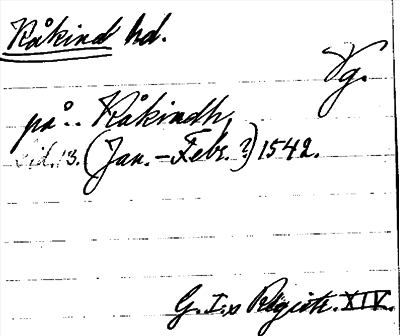 Kåkind hd.
Vg.
på.. Kåkindh
Sid. 13. (Jan. - Febr. ?) 1542.
G. I:s Registr. XIV.